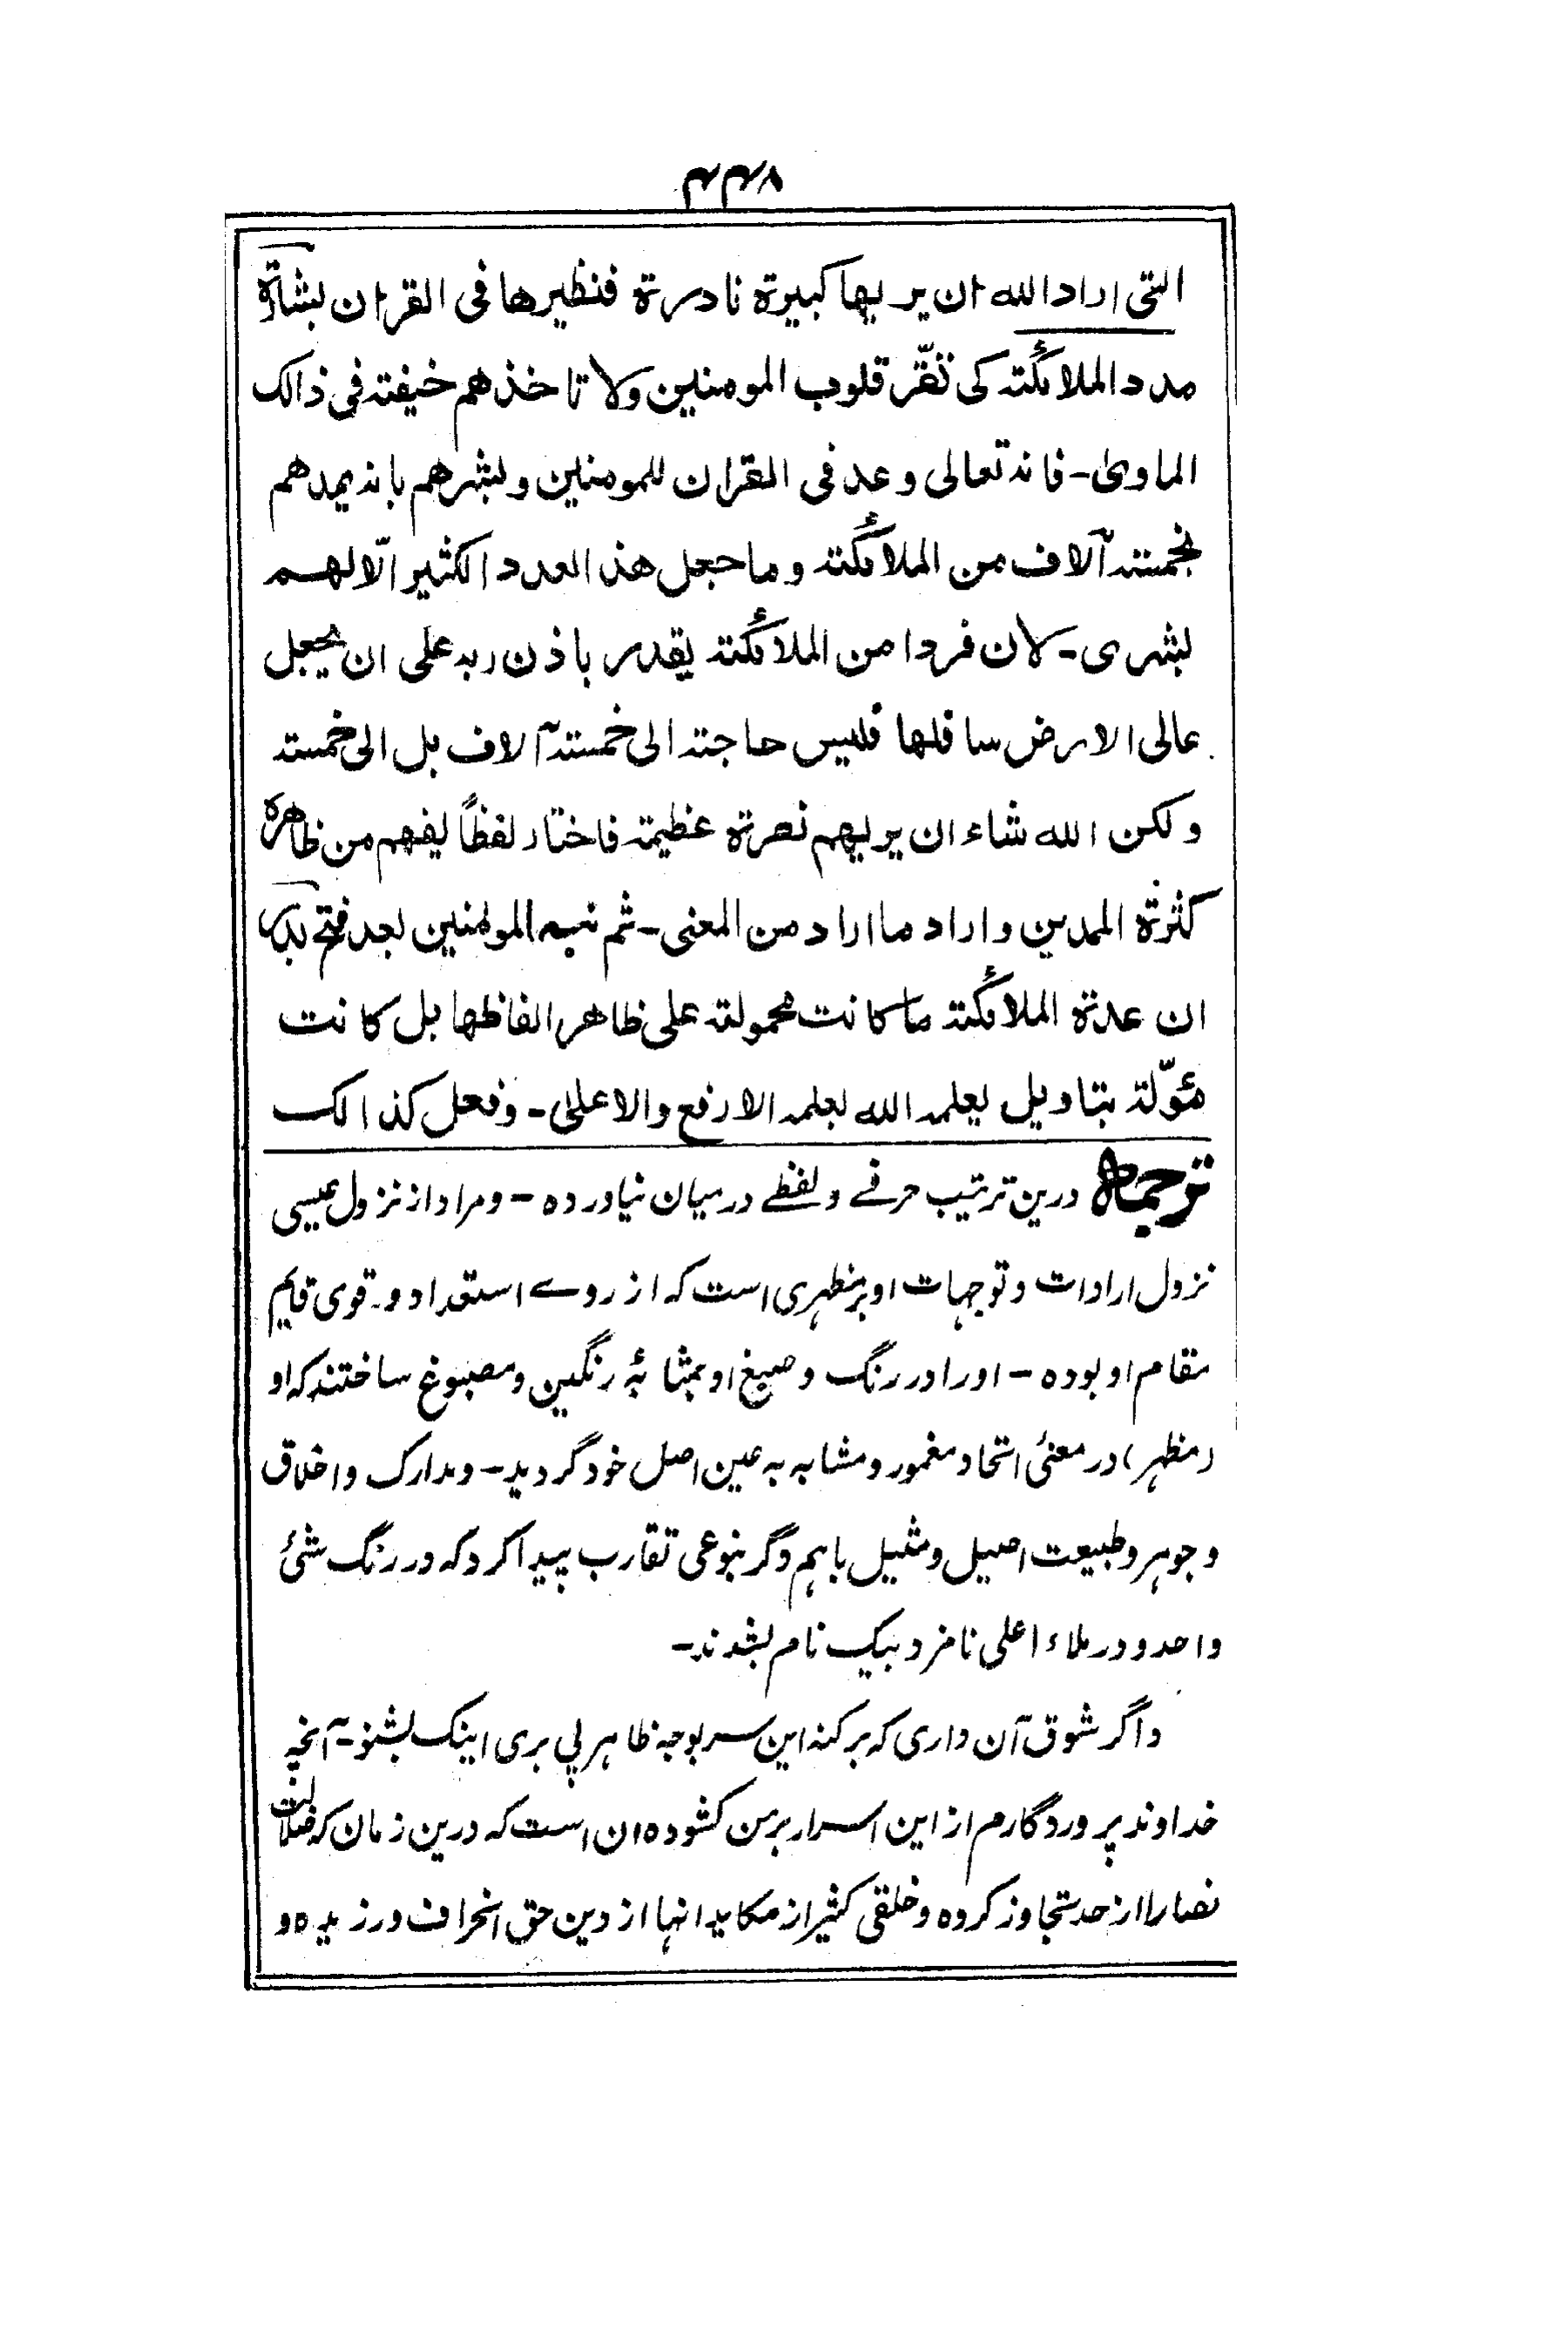 ۴۴۸
التی اراد الله ان یریها کبیرة نادرة فنظیرها فی القران بشارة
مدد الملائکة کی تقرّ قلوب المومنین ولا تاخذهم خیفة فی ذالک
الماوی - فانه تعالی وعد فی القران للمومنین وبشرهم بانه یمدهم
بخمسة آلاف من الملائکة وما جعل هذا العدد الکثیر الّا لهم
بشری - لان فردا من الملائکة یقدر باذن ربه علی ان یجعل
عالی الارض سافلها فلیس حاجة الی خمسة آلاف بل الی خمسة
ولکن الله شاء ان یریهم نصرة عظیمة فاختار لفظاً یفهم من ظاهره
کثرة الممدین واراد ما اراد من المعنی - ثم نبه المومنین بعد فتح بدر
ان عدة الملائکة ما کانت محمولة علی ظاهر الفاظها بل کانت
مئوّلة بتاویل یعلمه الله بعلمه الارفع والاعلیٰ - وفعل کذالک
ترجمه درین ترتیب حرفے و لفظے درمیان نیاورده - و مراد از نزول عیسی
نزول ارادات و توجهات او بر مظهری است که از روے استعداد و قوی قایم
مقام او بوده - او را در رنگ و صبغ او بمثابهٔ رنگین و مصبوغ ساختند که او
(مظهر) در معنئ اتحاد مغمور و مشابه به عین اصل خود گردید - و مدارک و اخلاق
و جوهر و طبیعت اصیل و مثیل باهم دگر بنوعی تقارب پیدا کرد که در رنگ شئ
واحد و در ملاء اعلی نامزد بیک نام بشدند -
و اگر شوق آن داری که بر کنه این سر بوجه ظاهر پی بری اینک بشنو - آنچه
خداوند پروردگارم از این اسرار بر من کشوده ان است که درین زمان که ضلالت
نصارا از حد تجاوز کرده و خلقی کثیر از مکاید انها از دین حق انحراف ورزیده و